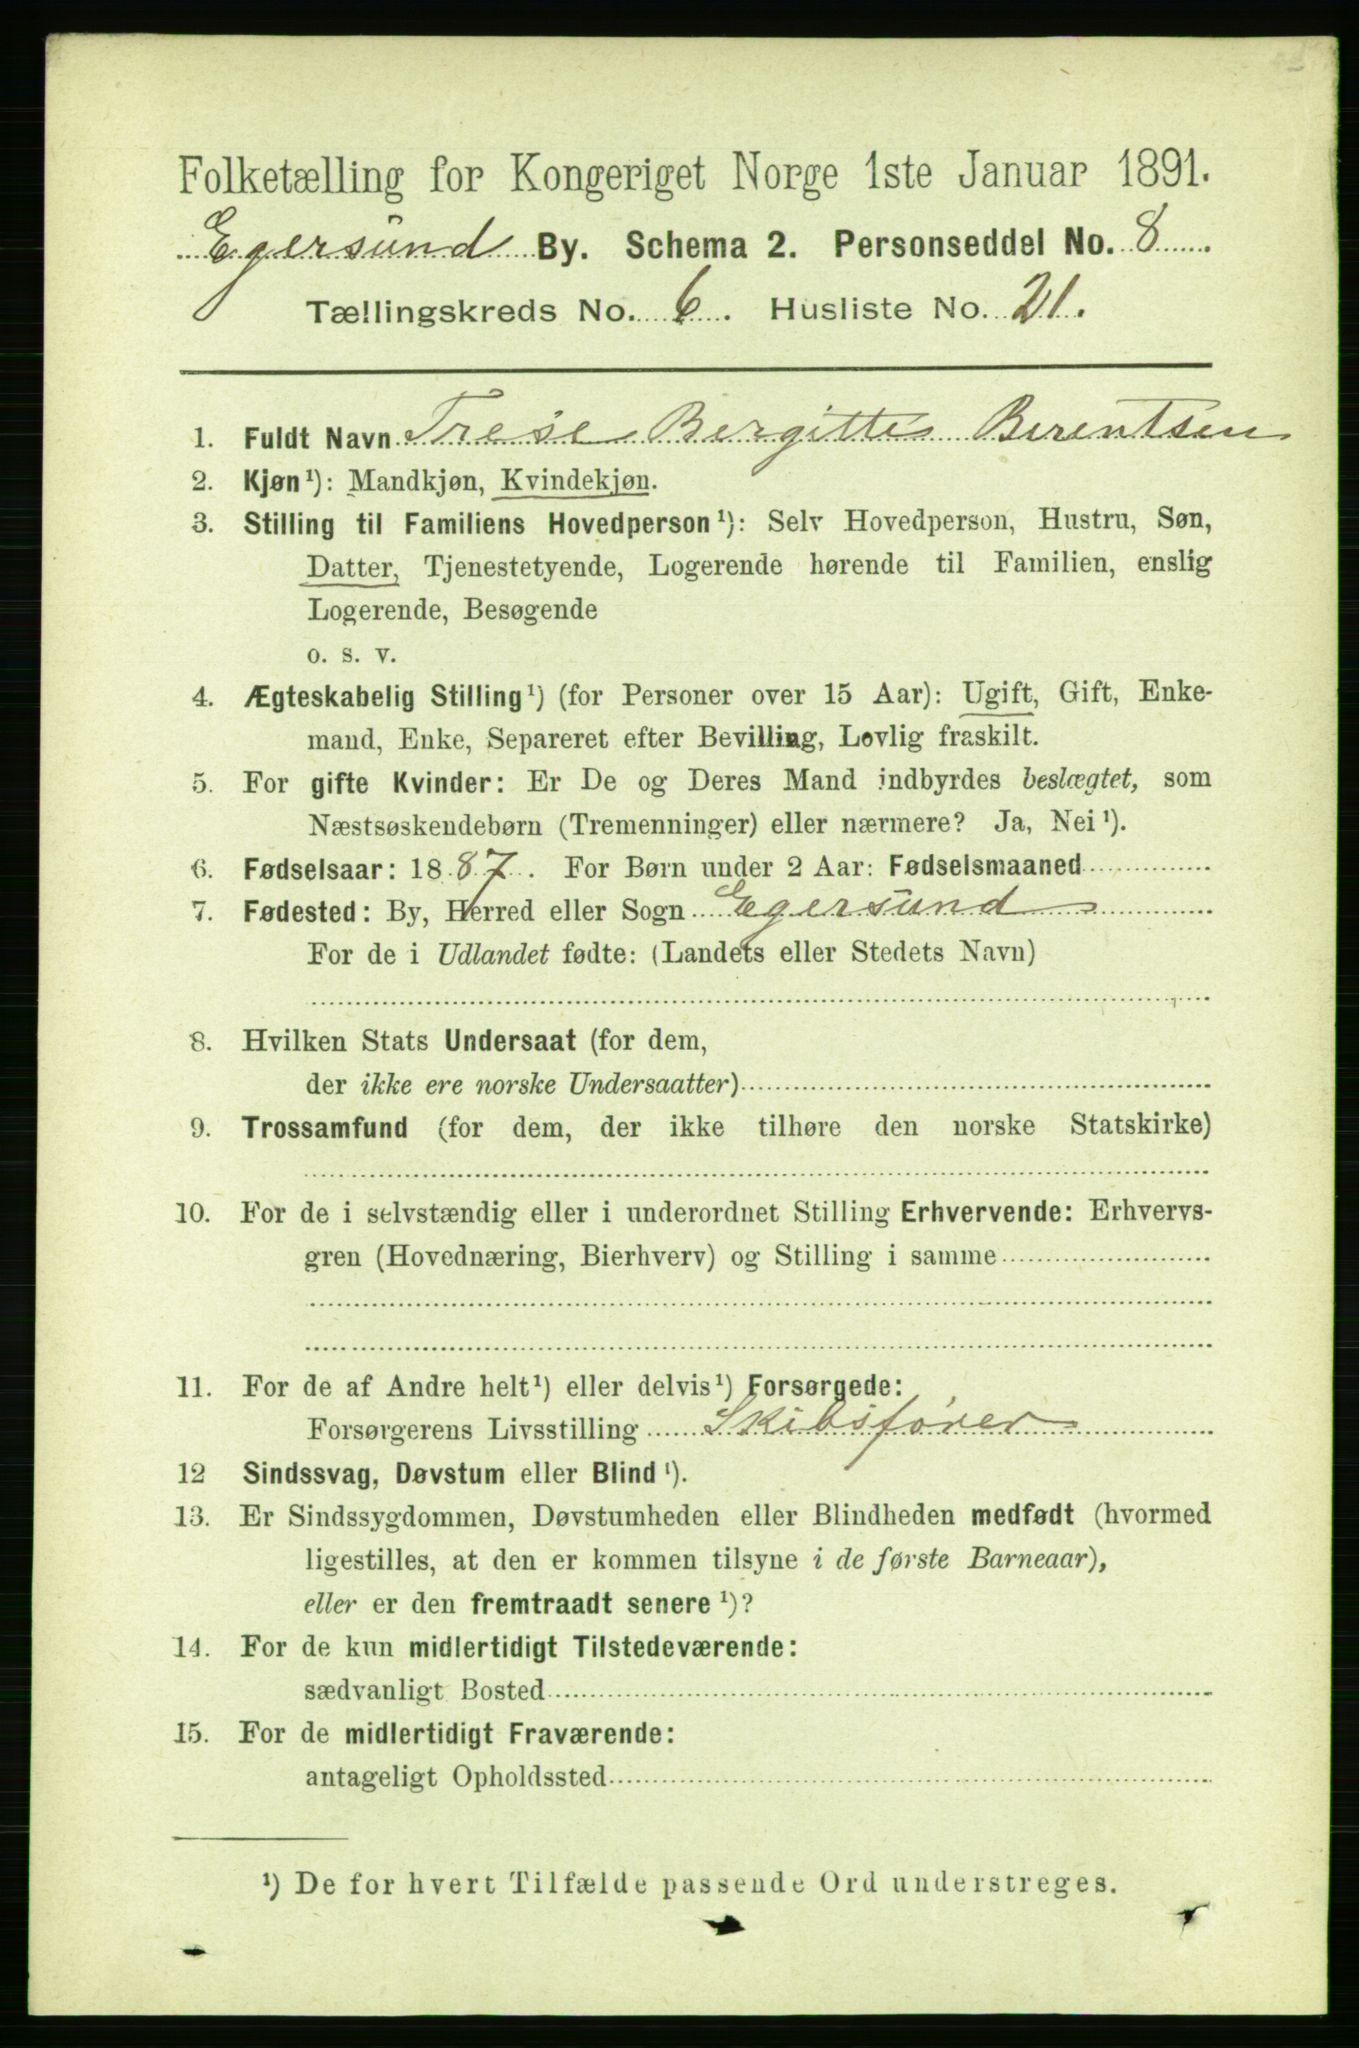 Folketælling for Kongeriget Norge 1ste Januar 1891.
Egersund By. Schema 2. Personseddel No. 8
Tællingskreds No. 6. Husliste No. 21.
1. Fuldt Navn Trese Bergitte Berentsen
2. Kjøn¹): Mandkjøn, Kvindekjøn.
3. Stilling til Familiens Hovedperson¹): Selv Hovedperson, Hustru, Søn,
Datter, Tjenestetyende, Logerende hørende til Familien, enslig
Logerende, Besøgende
o. s. v.
4. Ægteskabelig Stilling¹) (for Personer over 15 Aar): Ugift, Gift, Enke-
mand, Enke, Separeret efter Bevilling, Lovlig fraskilt.
5. For gifte Kvinder: Er De og Deres Mand indbyrdes beslægtet, som
Næstsøskendebørn (Tremenninger) eller nærmere? Ja, Nei¹).
6. Fødselsaar: 1887. For Børn under 2 Aar: Fødselsmaaned
7. Fødested: By, Herred eller Sogn Egersund
For de i Udlandet fødte: (Landets eller Stedets Navn)
8. Hvilken Stats Undersaat (for dem,
der ikke ere norske Undersaatter)
9. Trossamfund (for dem, der ikke tilhøre den norske Statskirke)
10. For de i selvstændig eller i underordnet Stilling Erhvervende: Erhvervs-
gren (Hovednæring, Bierhverv) og Stilling i samme
11. For de af Andre helt¹) eller delvis¹) Forsørgede:
Forsørgerens Livsstilling Skibsfører
12 Sindssvag, Døvstum eller Blind¹).
13. Er Sindssygdommen, Døvstumheden eller Blindheden medfødt (hvormed
ligestilles, at den er kommen tilsyne i de første Barneaar),
eller er den fremtraadt senere¹)?
14. For de kun midlertidigt Tilstedeværende:
sædvanligt Bosted
15. For de midlertidigt Fraværende:
antageligt Opholdssted
¹) De for hvert Tilfælde passende Ord understreges.